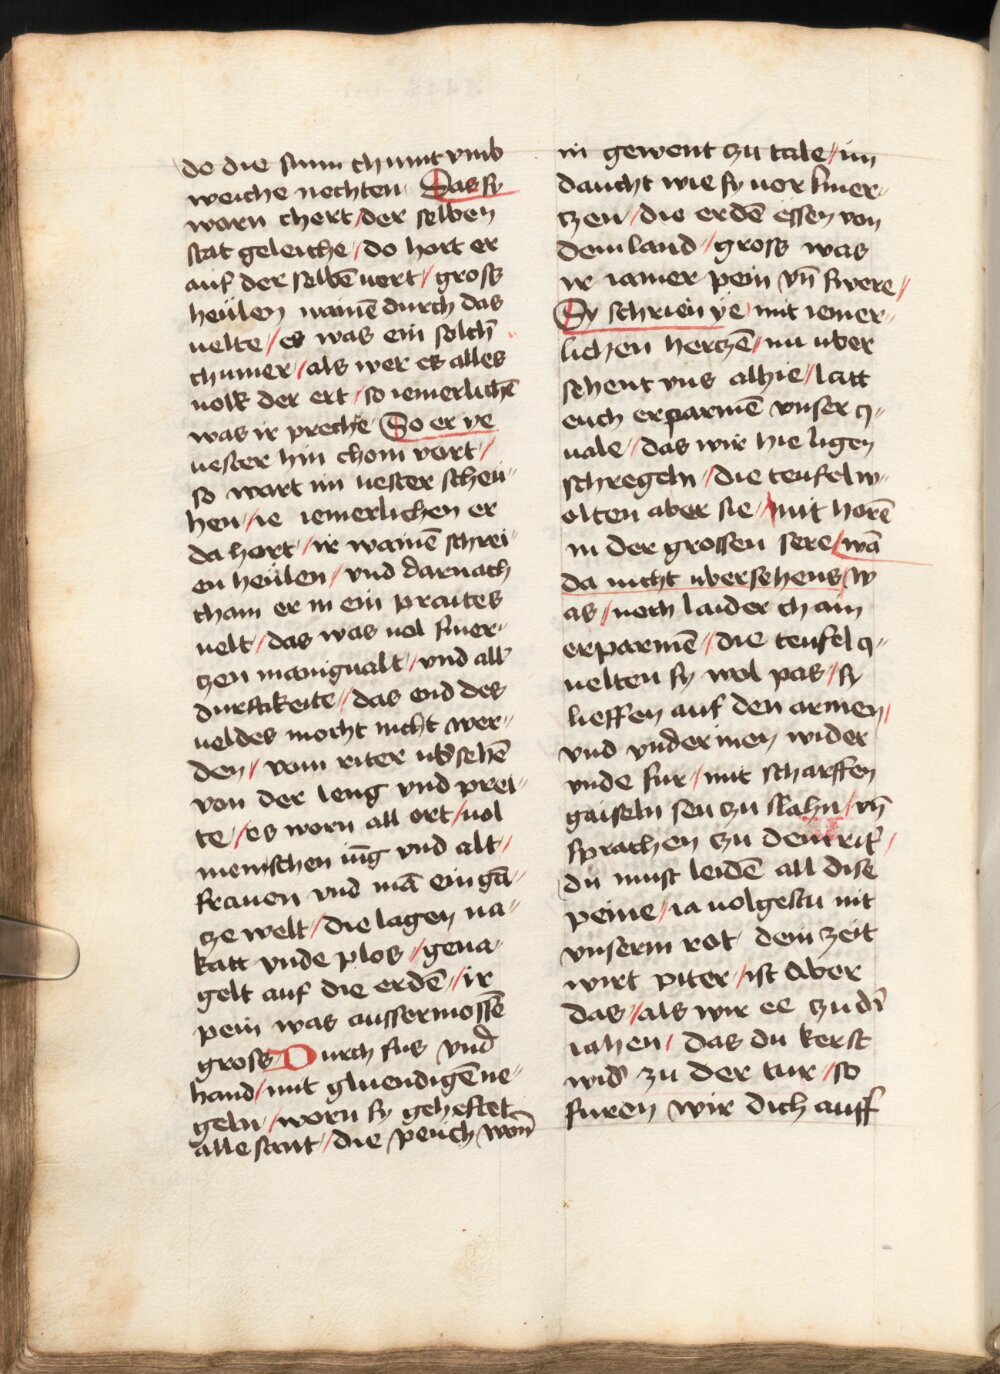 do die sunn chumt vmb
weiche nechten Das sy
warn chert / der selben
stat geleiche / do hort er
auf der selbē vert / gross
heülen wainē durch das
velte / es was ein solch̄
chumer / als wer es alles
volk der ert / so iemerlichē
was ir preche So er ye
vester hin chom vort /
so wart im vester scheü-
hen / ie iemerlichen er
da hort / ir wainē schrei-
en heülen / vnd darnach
cham er in ein praites
velt / das was vol smer-
czen manigualt / vnd all
durftikeite / das end des
veldes mocht nicht wer-
den / vom riter vb̄sehē
von der leng vnd prei-
te / es worn all ort / vol
menschen iūg vnd alt /
frauen vnd mā ein gā-
cze welt / die lagen na-
katt vnde plos / gena-
gelt auf die erdē / ir
pein was aussermossē
gross Durch fus vnd
hand / mit gluendigē ne-
geln / worn sy geheftet
alle sant / die peüch worn̄
in gewent zu tale / im
daucht wie sy vor smer-
czen / die erdē essen von
dem land / gross was
ir iamer pein vn̄ swere /
Sy schrien ye mit iemer-
lichen hertzē / nu vber
sehent vns alhie / latt
euch erparmē vnser q-
uale / das wir hie ligen
schregeln / die teufel w-
olten aber sie / mit horē
in der grossen sere / wā
da nicht vbersehens w
as / noch laider chain
erparmē / die teufel q-
uelten sy wol pas / sy
lieffen auf den armen /
vnd vnder inen wider
vnde fur / mit scharffen
gaiseln sen zu slahn / vn̄
sprachen zu dem rit̄ /
du must leidē all dise
peine / ia volgestu nit
vnserm rot dem zeit
wirt piter / ist aber
das / als wir ee zu dir̄
iahen / das du kerst
wid̄ zu der tur / so
furen wir dich auff